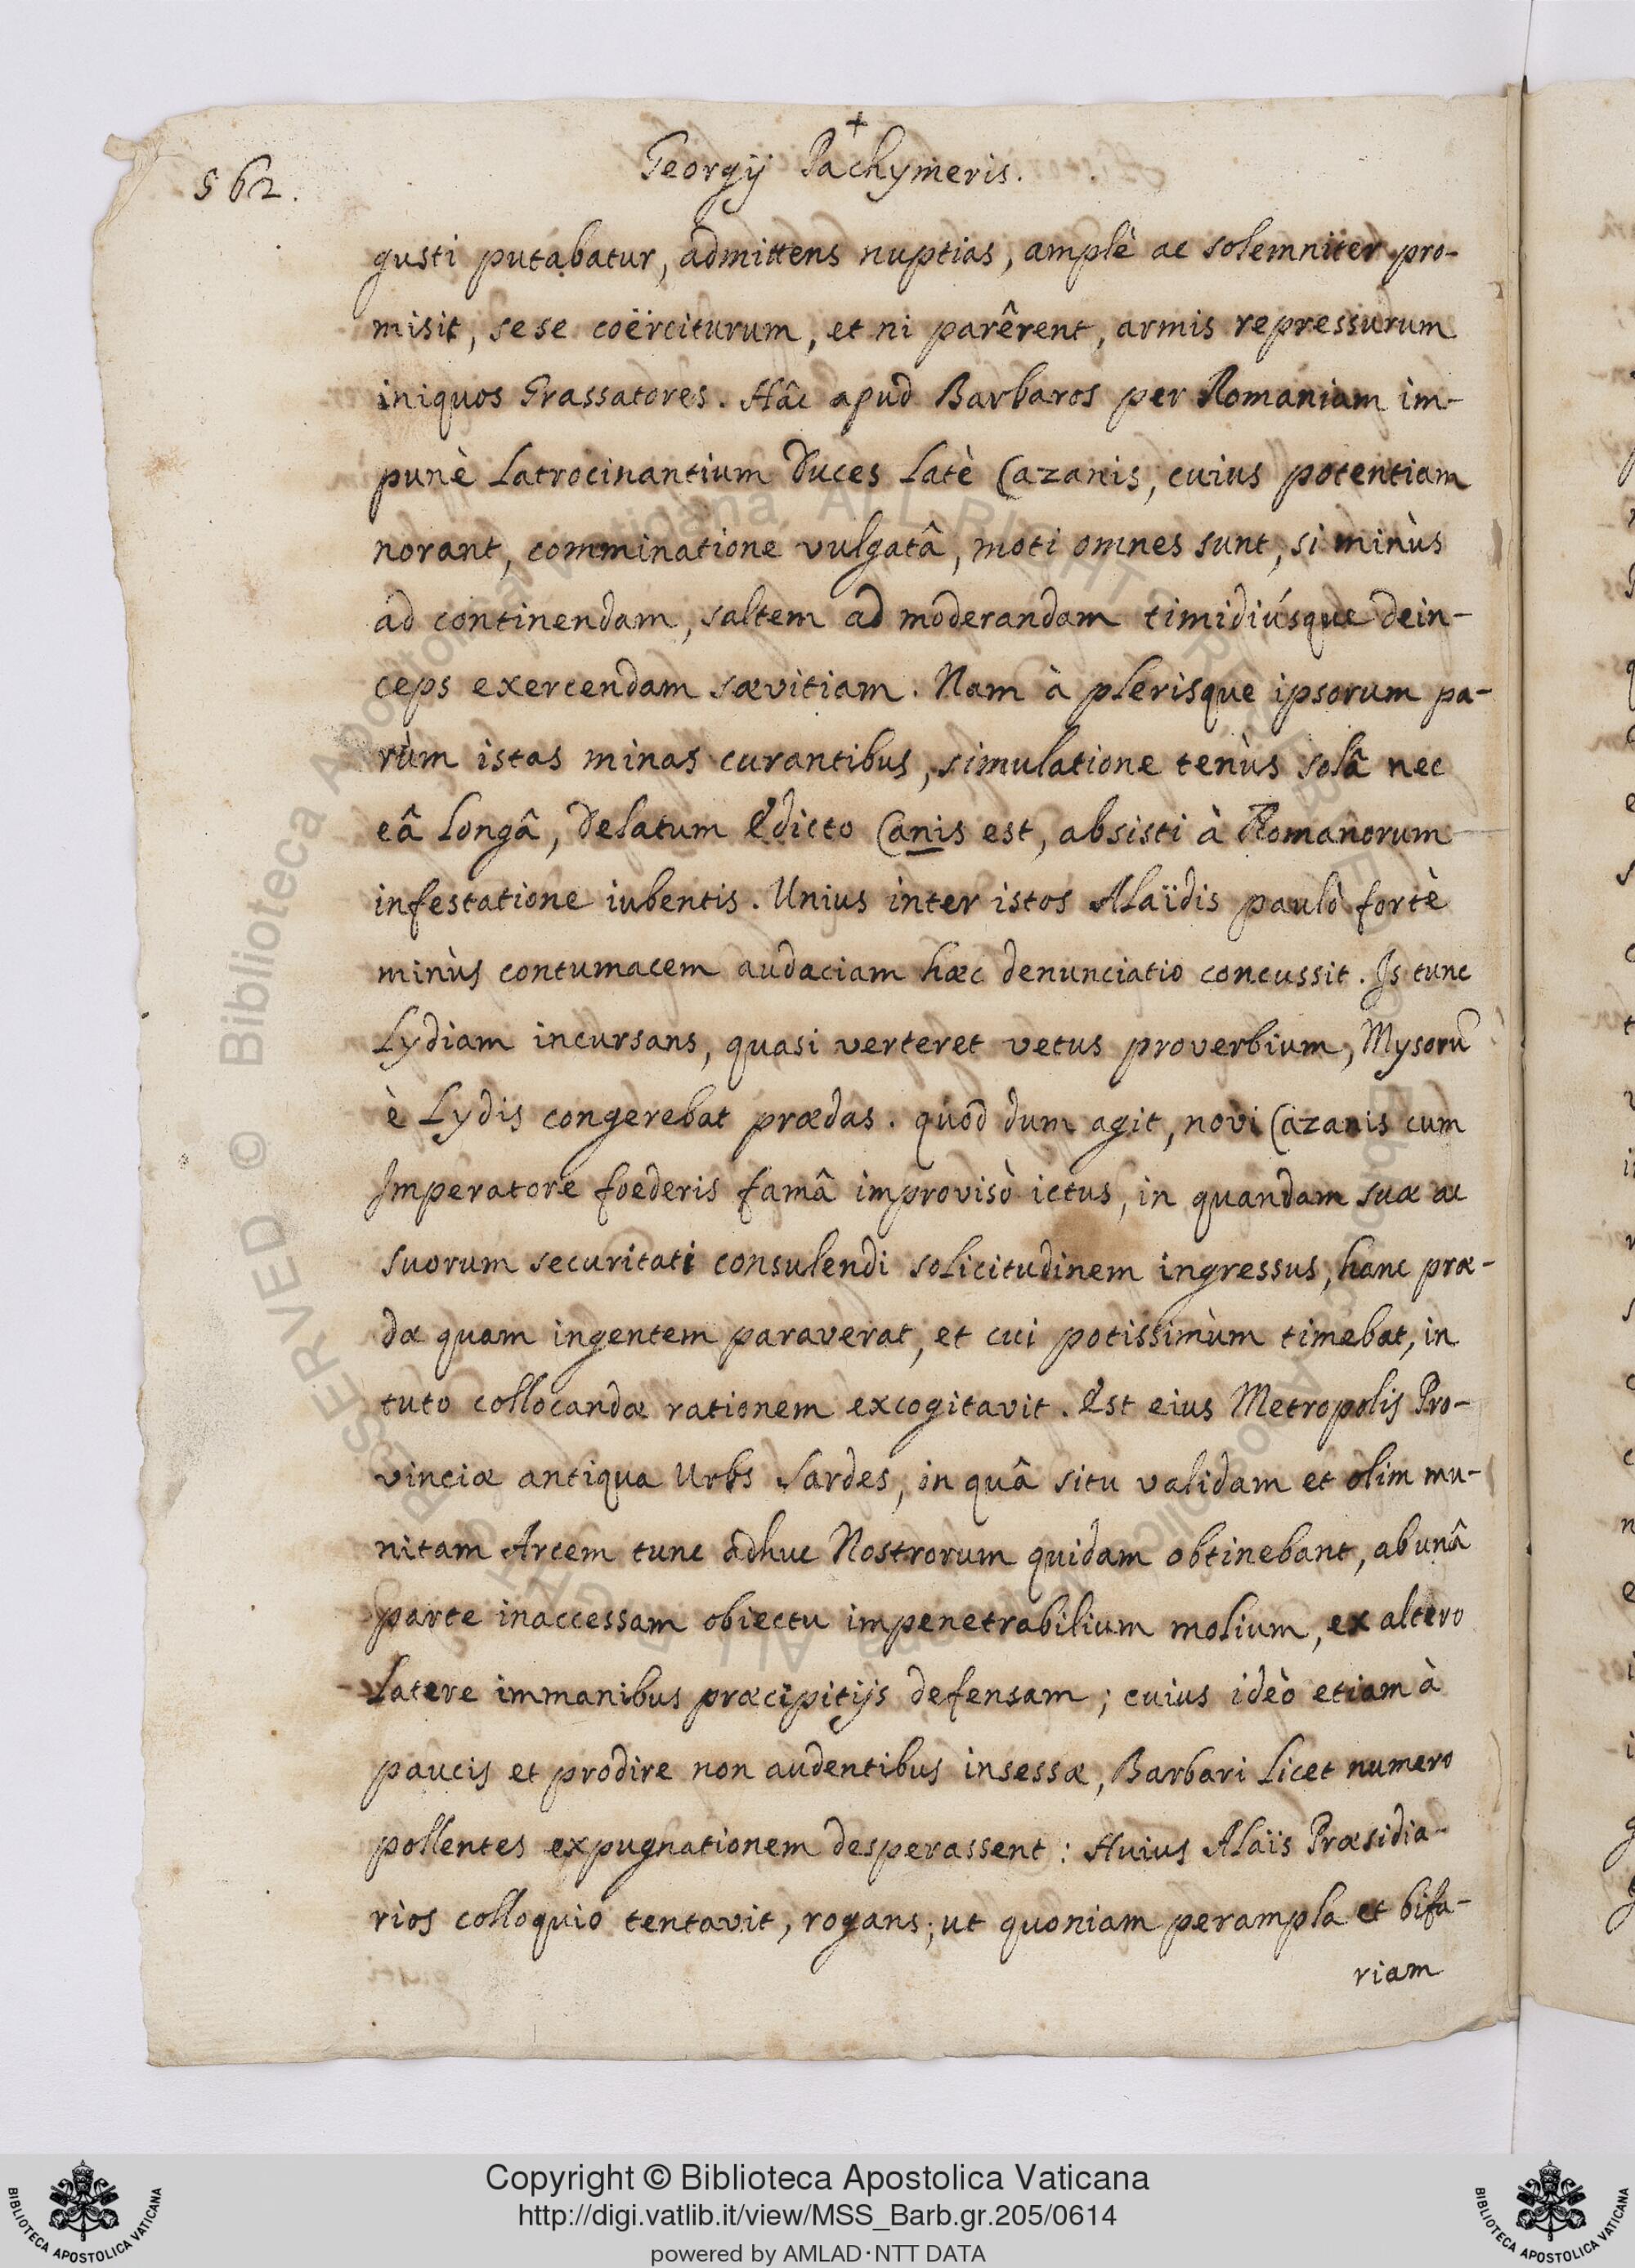 562.
Georgij Pachymeris.
gusti putabatur, admittens nuptias, amplè ac solemniter pro-
misit, sese coërciturum, et ni parêrent, armis repressurum
iniquos Grassatores. Hâc apud Barbaros per Romaniam im-
punè Latrocinantium Duces Latè Cazanis, cuius potentiam
norant, comminatione vulgatâ, moti omnes sunt, si minùs
ad continendam, saltem ad moderandam timidiúsque dein-
ceps exercendam sævitiam. Nam à plerisque ipsorum pa-
rùm istas minas curantibus, simulatione tenùs solâ nec
eâ longâ, delatum Edicto Canis est, absisti à Romanorum
infestatione iubentis. Unius inter istos Alaïdis paulò fortè
minùs contumacem audaciam hæc denunciatio concussit. Is tunc
Lydiam incursans, quasi verteret vetus proverbium, Mysorũ
è Lydis congerebat prædas. quod dum agit, novi Cazanis cum
Imperatore foederis famâ improvisò ictus, in quandam suæ ac
suorum securitati consulendi solicitudinem ingressus, hanc præ-
dæ quam ingentem paraverat, et cui potissimùm timebat, in
tuto collocandæ rationem excogitavit. Est eius Metropolis Pro-
vinciæ antiqua Urbs Sardes, in quâ situ validam et olim mu-
nitam Arcem tunc adhuc Nostrorum quidam obtinebant, ab unâ
parte inaccessam obiectu impenetrabilium molium, ex altero
Latere immanibus præcipitijs defensam; cuius ideò etiam à
paucis et prodire non audentibus insessæ, Barbari licet numero
pollentes expugnationem desperassent: Huius Alaïs Præsidia-
rios colloquio tentavit, rogans; ut quoniam perampla et bifa-
riam
Copyright © Biblioteca Apostolica Vaticana
http://digi.vatlib.it/view/MSS_Barb.gr.205/0614
powered by AMLAD·NTT DATA
BIBLIOTECA APOSTOLICA VATICANA
BIBLIOTECA APOSTOLICA VATICANA